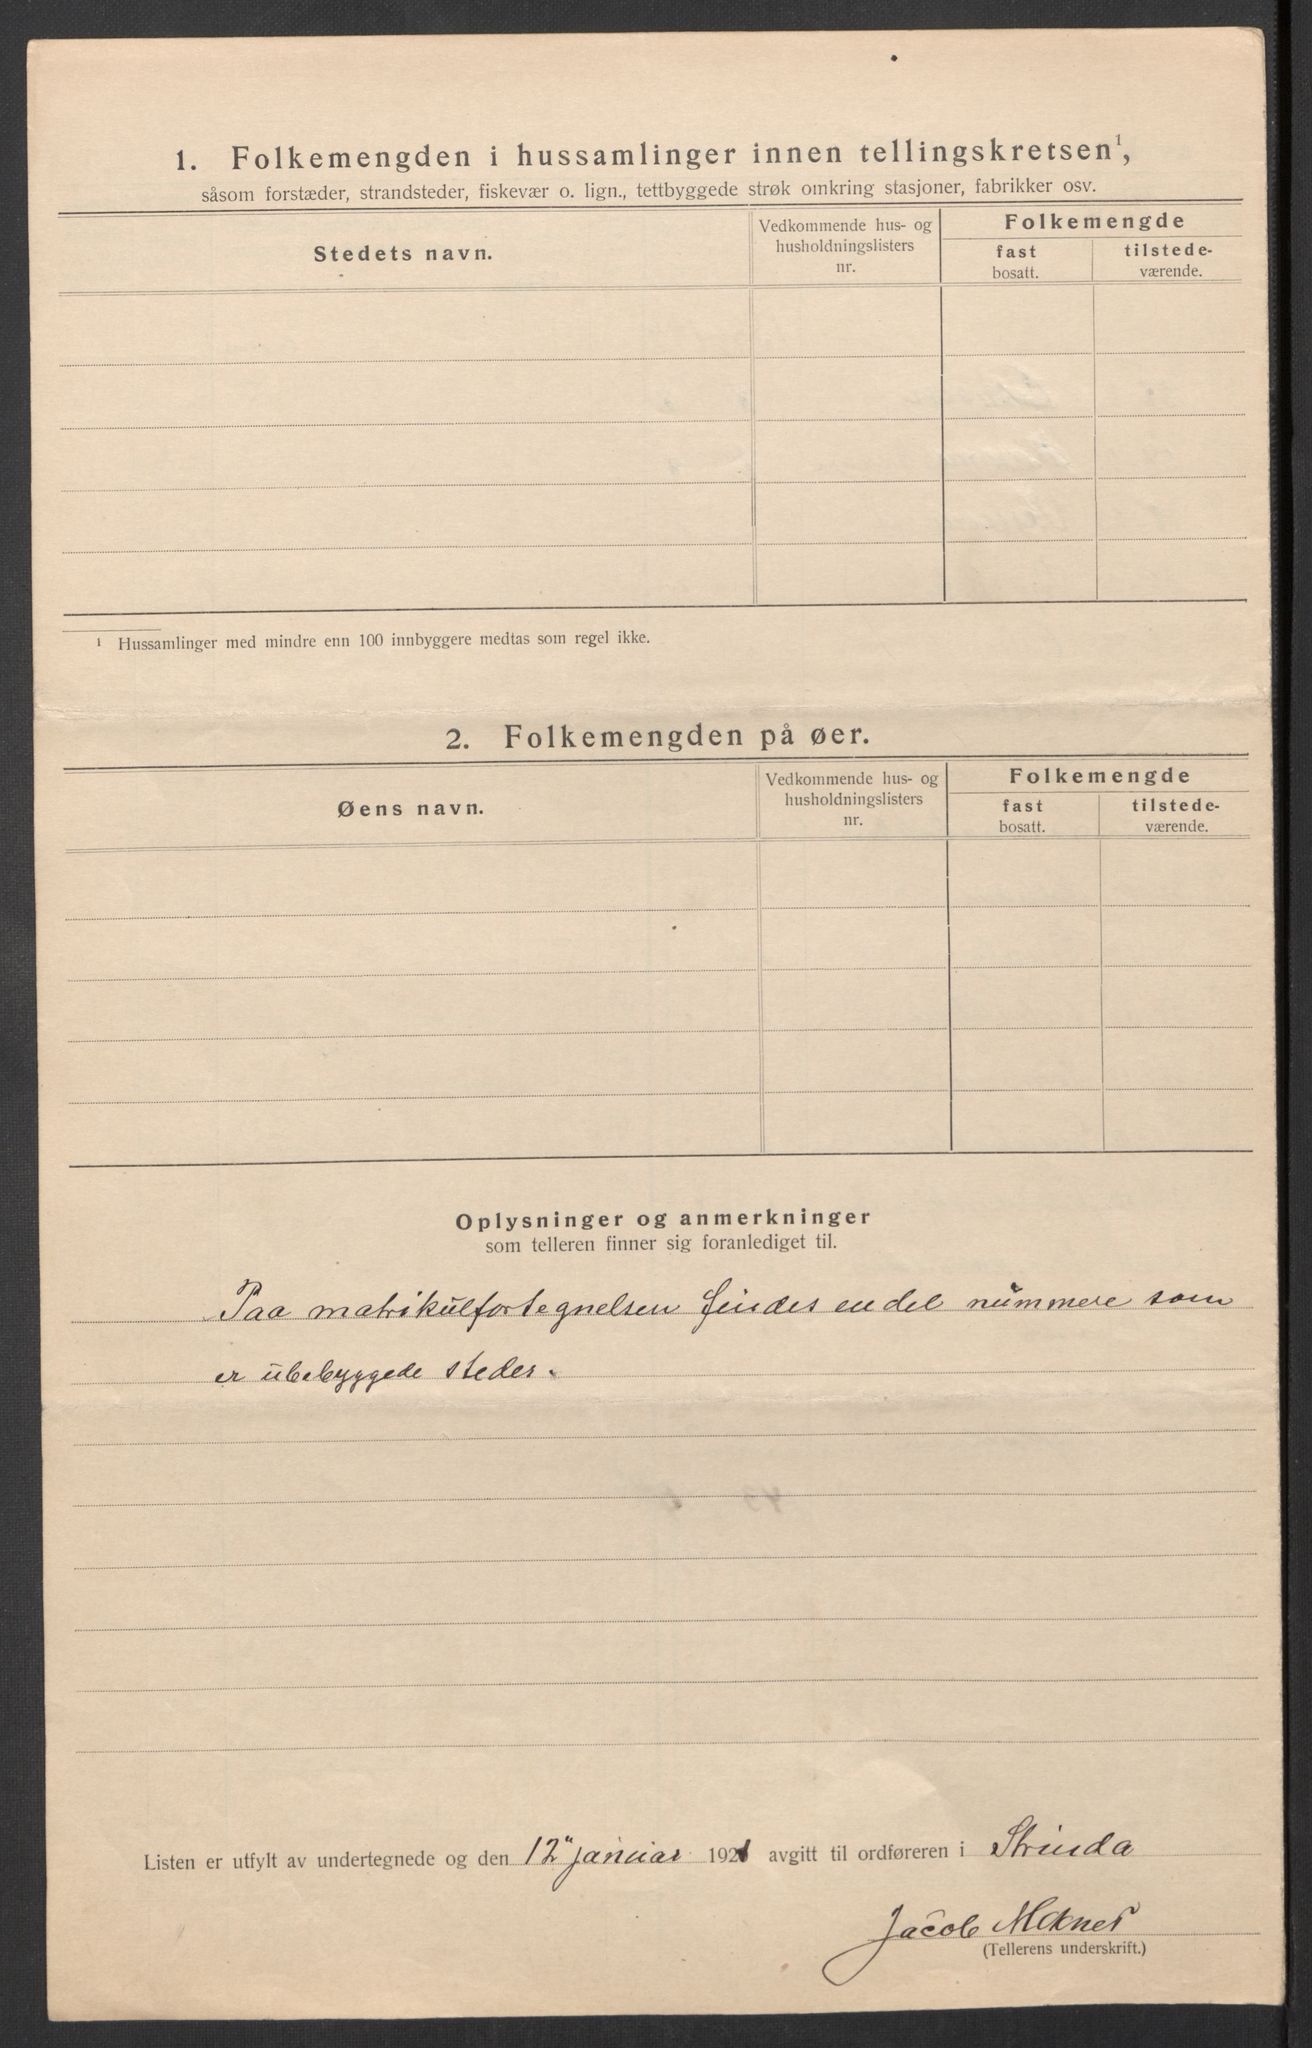 1. Folkemengden i hussamlinger innen tellingskretsen¹,
såsom forstæder, strandsteder, fiskevær o. lign., tettbyggede strøk omkring stasjoner, fabrikker osv.
Stedets navn.
Vedkommende hus- og
husholdningslisters
nr.
Folkemengde
fast
bosatt.
tilstede-
værende.
¹ Hussamlinger med mindre enn 100 innbyggere medtas som regel ikke.
2. Folkemengden på øer.
Øens navn.
Vedkommende hus- og
husholdningslisters
nr.
Folkemengde
fast
bosatt.
tilstede-
værende.
Oplysninger og anmerkninger
som telleren finner sig foranlediget til.
Paa matrikulfortegnelsen findes en del nummere som
er ubebyggede steder.
Listen er utfylt av undertegnede og den 12" januar 1921 avgitt til ordføreren i Strinda
Jacob
(Tellerens underskrift.)